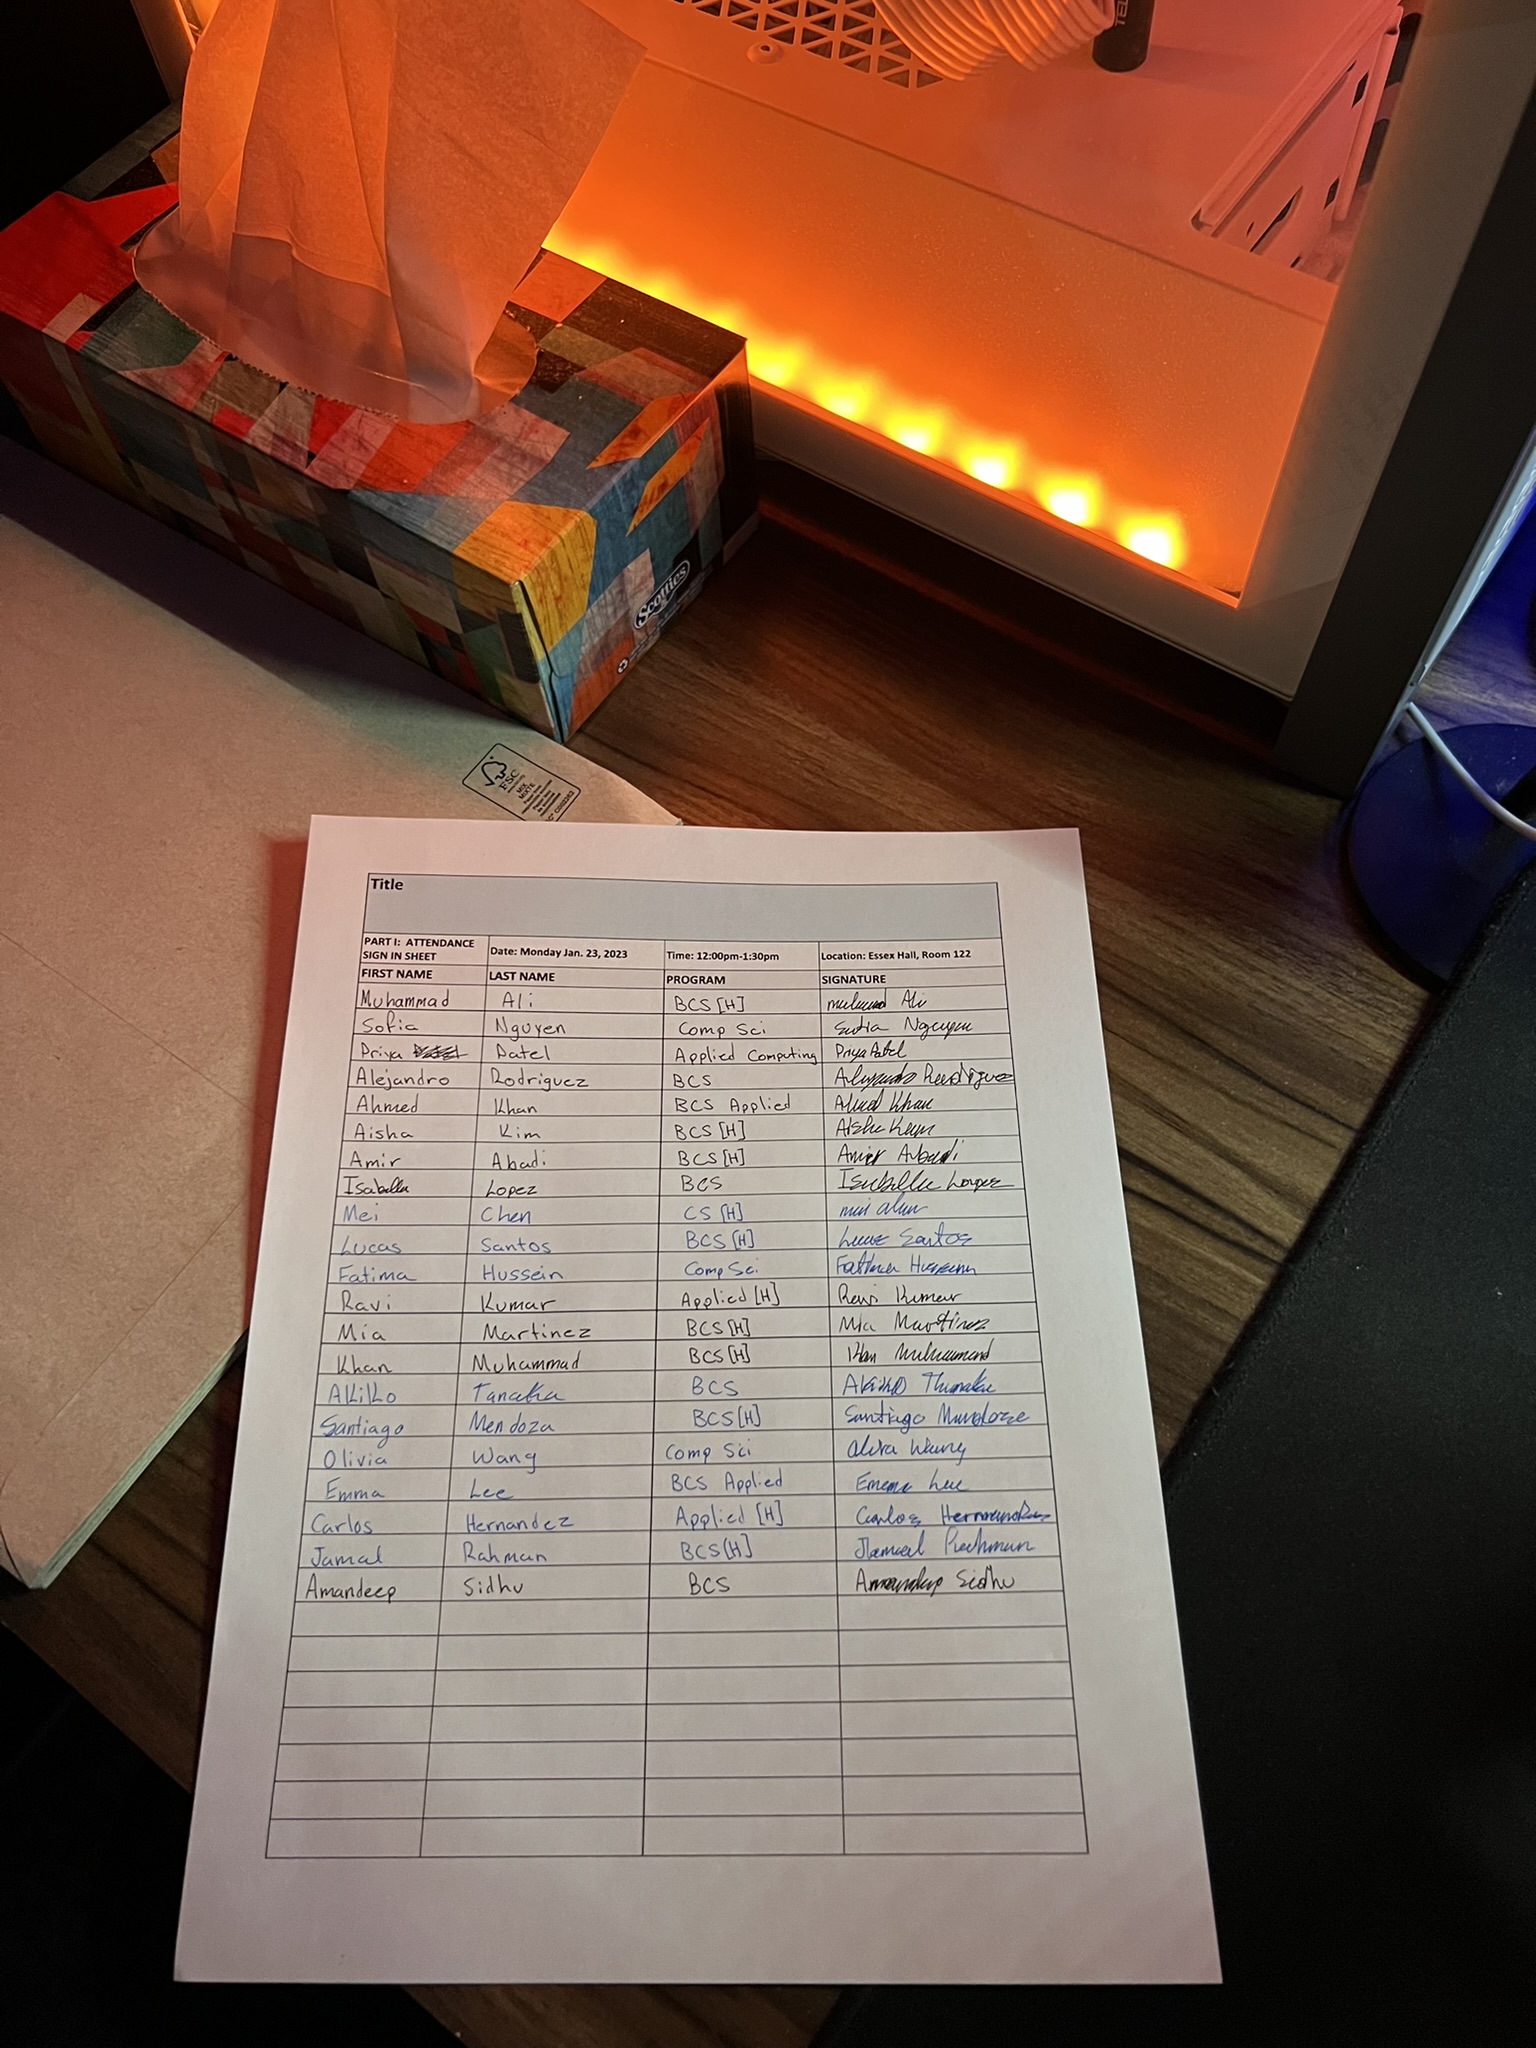 TEL
Scotties
FSC
MIX
MIXTE
Title
PART I: ATTENDANCE SIGN IN SHEET Date: Monday Jan. 23, 2023 Time: 12:00pm-1:30pm Location: Essex Hall, Room 122
FIRST NAME LAST NAME PROGRAM SIGNATURE
Muhammad Ali BCS [H] Ali
Sofia Nguyen Comp Sci Sofia Nguyen
Priya Patel Applied Computing Priya Patel
Alejandro Rodriguez BCS Alejandro Rodriguez
Ahmed Khan BCS Applied Ahmed Khan
Aisha Kim BCS [H] Aisha
Amir Abadi BCS [H] Amir Abadi
Isabella Lopez BCS Isabella Lopez
Mei Chen CS [H]
Lucas Santos BCS [H] Lucas Santos
Fatima Hussein Comp Sci Fatima Hussein
Ravi Kumar Applied [H] Ravi Kumar
Mia Martinez BCS [H] Mia Martinez
Khan Muhammad BCS [H] Khan Muhammad
Akiko Tanaka BCS Akiko Tanaka
Santiago Mendoza BCS [H] Santiago Mendoza
Olivia Wang Comp Sci Wang
Emma Lee BCS Applied Emma Lee
Carlos Hernandez Applied [H] Carlos Hernandez
Jamal Rahman BCS [H] Jamal Rahman
Amandeep Sidhu BCS Amandeep Sidhu